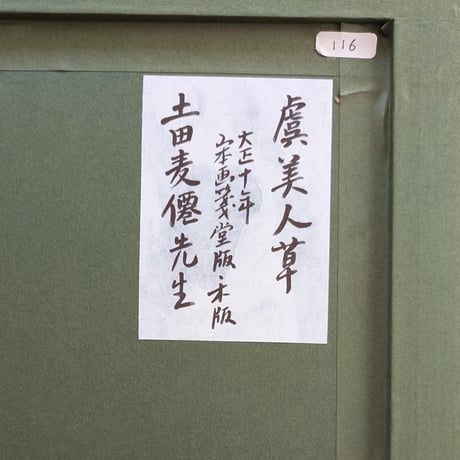 116
虞美人草
大正十年
山本画箋堂版・木版
土田麦僊先生